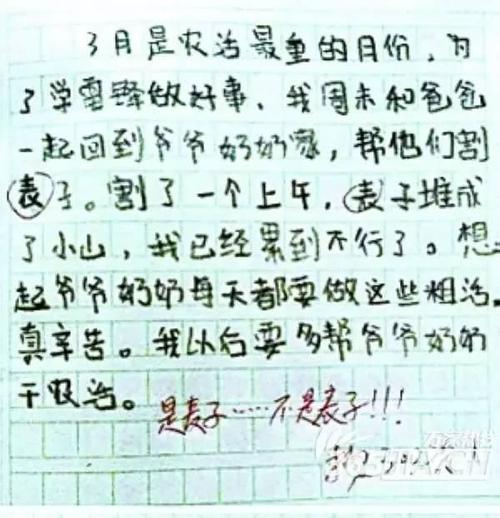 3月是农活最重的月份，为
了学雷锋做好事，我周末和爸爸
一起回到爷爷奶奶家，帮他们割
表子。割了一个上午，表子堆成
了小山，我已经累到不行了。想
起爷爷奶奶每天都要做这些粗活。
真辛苦。我以后要多帮爷爷奶奶
干活。
是麦子……不是表子!!!